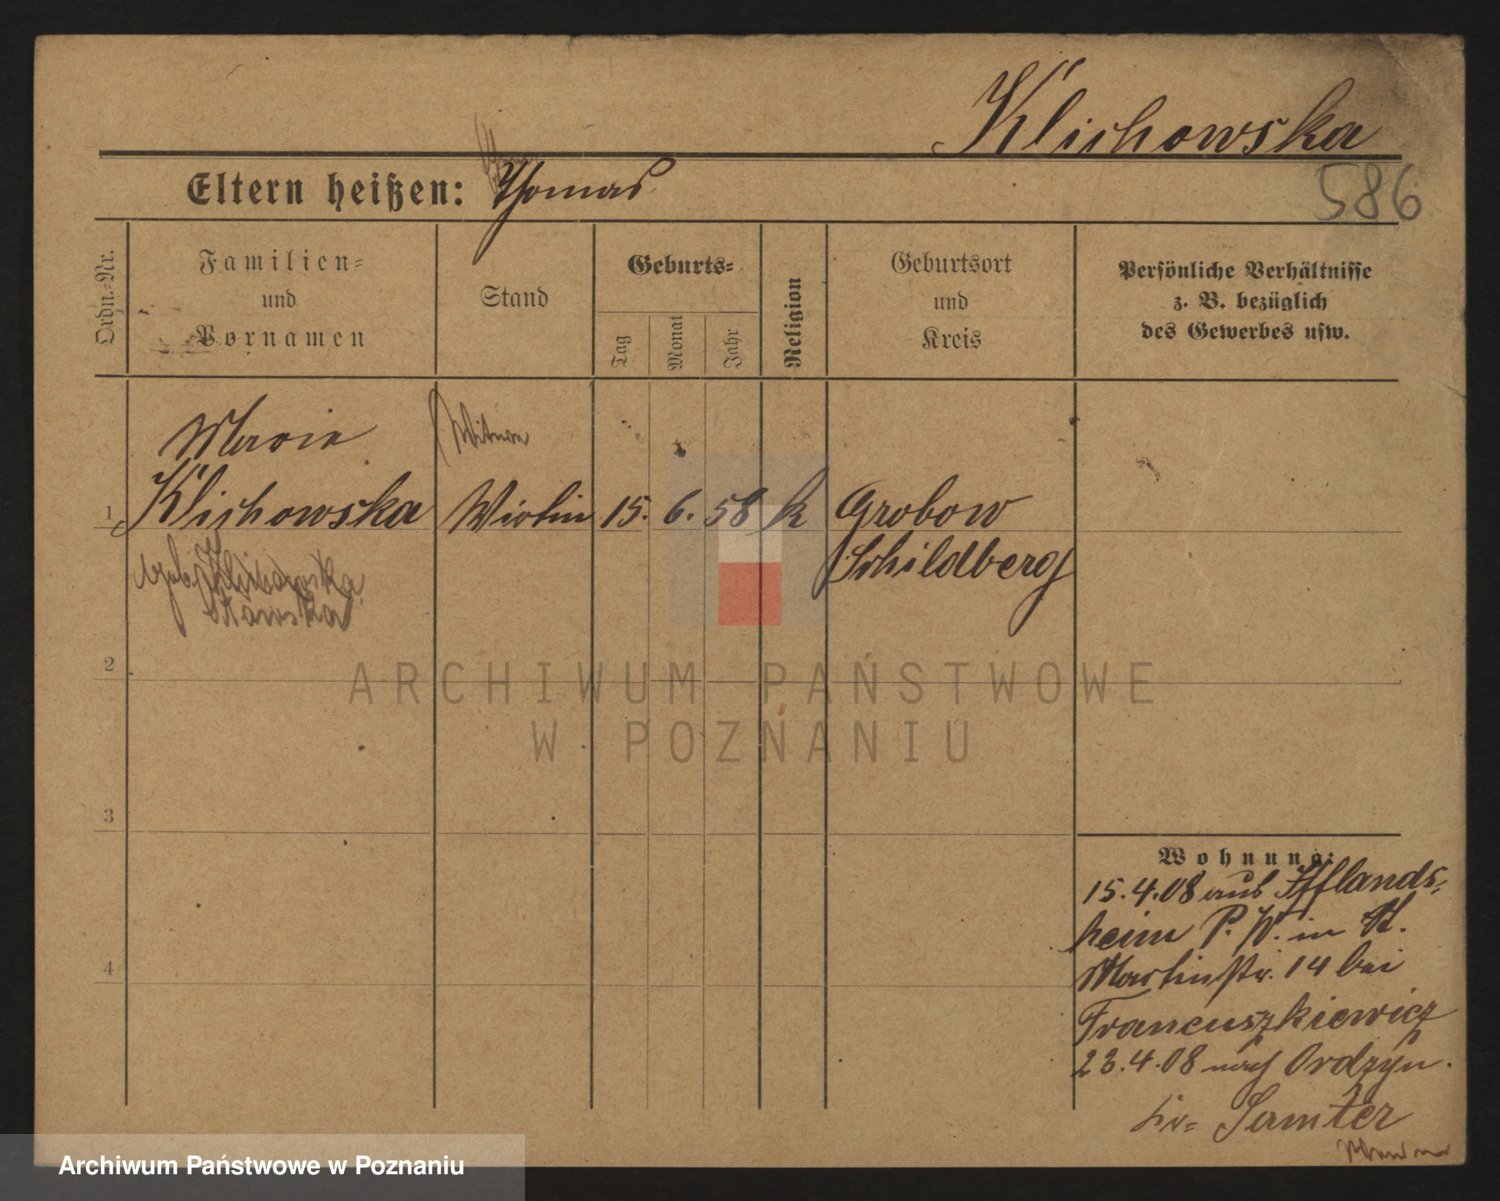 Klichowska
586
Eltern heißen: Thomas
Ordn.-Nr.
Familien-
und
Vornamen
Stand
Geburts-
Tag
Monat
Jahr
Religion
Geburtsort
und
Kreis
Persönliche Verhältnisse
z. B. bezüglich
des Gewerbes usw.
Marie
Witwe
1 Klichowska Wirtin 15. 6. 58 k Grobow
Schildberg
geb. Klichowska
Stawska
2
ARCHIWUM PAŃSTWOWE
W POZNANIU
3
Wohnung:
15.4.08 aus Ifflands-
heim P. W. in St.
4
Martinstr. 14 bei
Francuszkiewicz
23.4.08 nach Ordzyn.
Kr= Samter
Archiwum Państwowe w Poznaniu